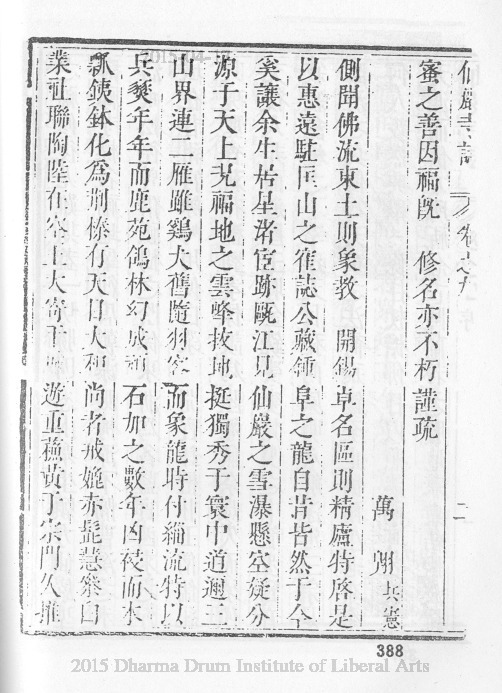 仙巖寺誌 卷之九 二
蜜之善因福旣 修名亦不朽謹疏
萬 兵憲
側聞佛流東土則象教 開錫卓名區則精廬特啓是
以惠遠駐匡山之 誌公藏鍾阜之龍自昔皆然于今
奚讓余生居星渚宦跡甌江見仙巖之雪瀑懸空疑分
源于天上 福地之雲峰拔地挺獨秀于寰中道邇三
山界連二雁雖鷄犬舊隨羽客而象龍時付緇流特以
兵燹年年而鹿苑鴿林幻成 石加之數年凶 而木
瓢銕鉢化爲荆榛有天目大和尚者戒 赤髭慧 白
業社聯陶陸在 上大 遊重 黃于宗門久推
388
2015 Dharma Drum Institute of Liberal Arts